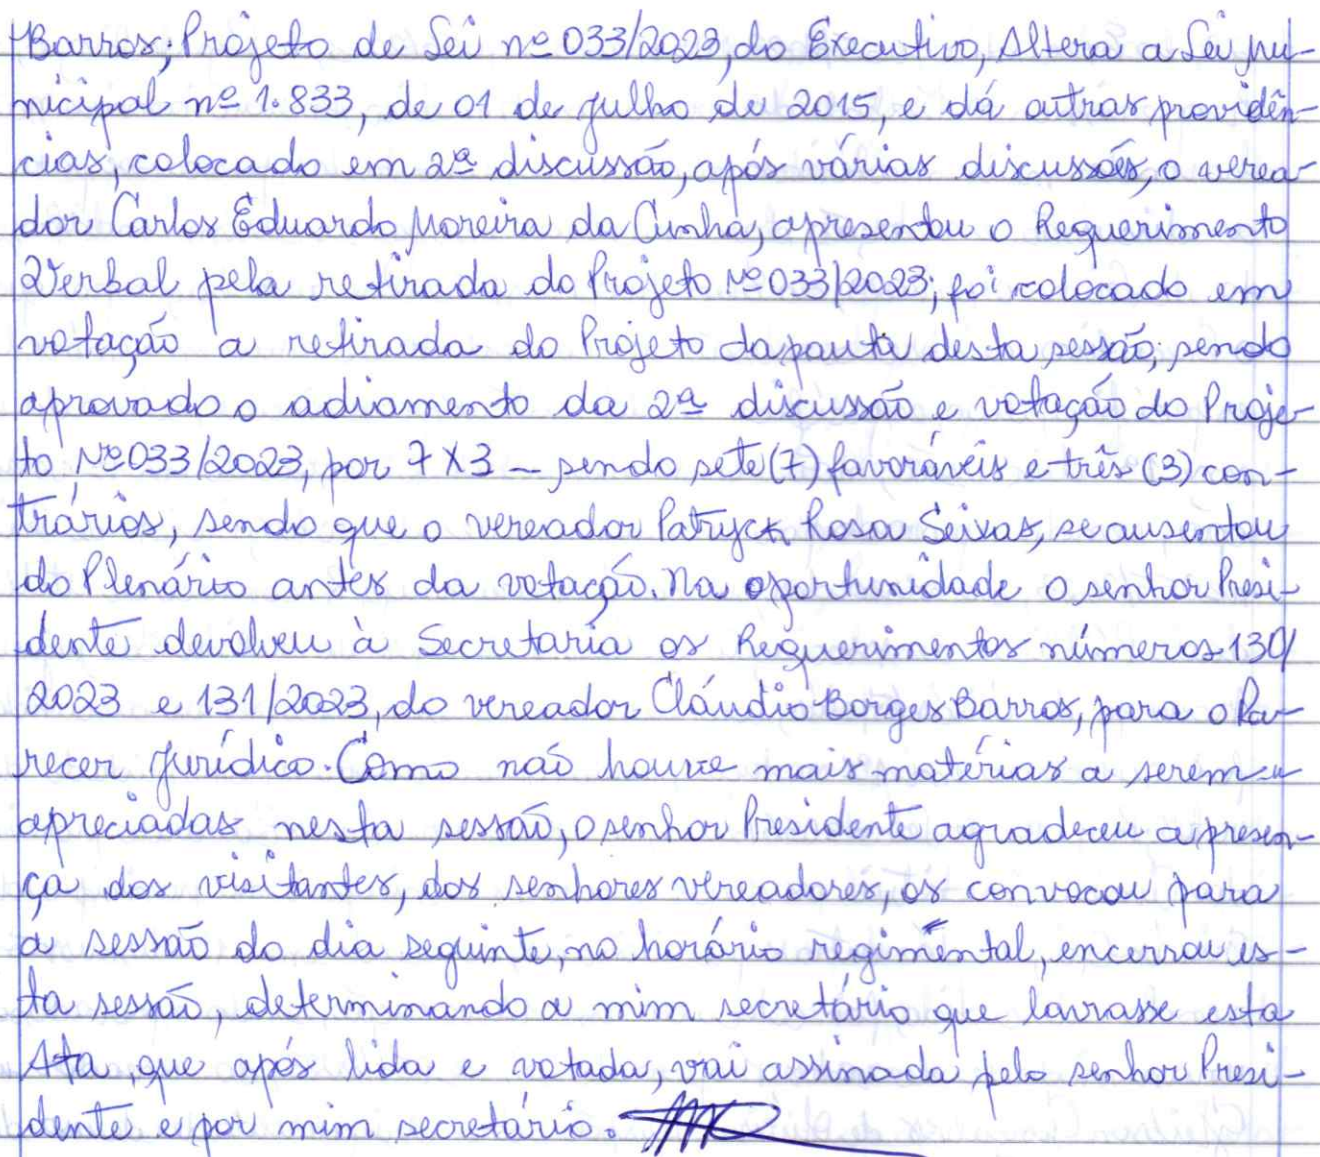 Barros; Projeto de Lei nº 033/2023, do Executivo, Altera a Lei Mu-
nicipal nº 1.833, de 01 de julho de 2015, e dá outras providên-
cias, colocado em 2ª discussão, após várias discussões, o verea-
dor Carlos Eduardo Moreira da Cunha, apresentou o Requerimento
Verbal pela retirada do Projeto Nº 033/2023; foi colocado em
votação a retirada do Projeto da pauta desta sessão; sendo
aprovado o adiamento da 2ª discussão e votação do Proje-
to Nº 033/2023, por 7 X 3 - sendo sete (7) favoráveis e três (3) con-
trários, sendo que o vereador Patryck Rosa Seixas, se ausentou
do Plenário antes da votação. Na oportunidade o senhor Presi-
dente devolveu à Secretaria os Requerimentos números 130/
2023 e 131/2023, do vereador Cláudio Borges Barros, para o Pa-
recer Jurídico. Como não houve mais matérias a serem
apreciadas nesta sessão, o senhor Presidente agradeceu a presen-
ça dos visitantes, dos senhores vereadores, os convocou para
a sessão do dia seguinte, no horário regimental, encerrou es-
ta sessão, determinando a mim secretário que lavrasse esta
Ata, que após lida e votada, vai assinada pelo senhor Presi-
dente e por mim secretário.